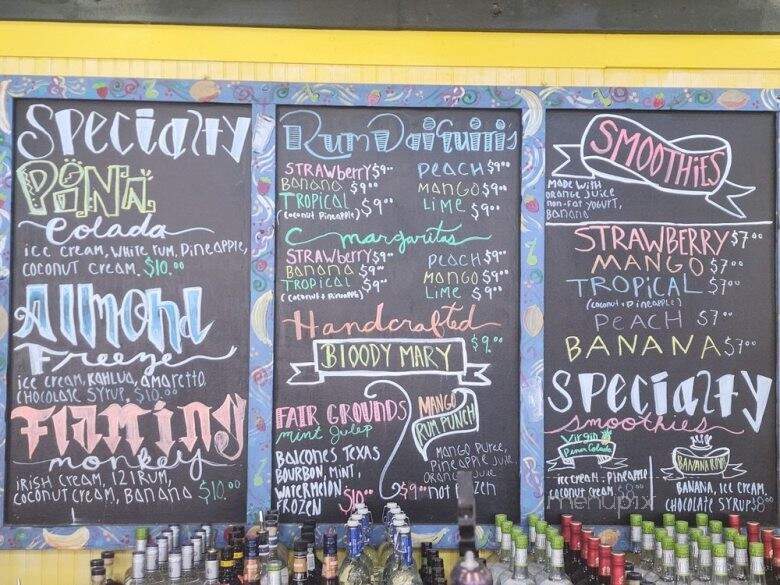 Specialty
Pina
Colada
ice cream, white rum, pineapple,
coconut cream. $10.00
Almond
Freeze
ice cream, Kahlua, amaretto
chocolate syrup, $10.00
Flaming
monkey
Irish cream, 121 Rum,
coconut cream, Banana $10.00
Rum Daiquiris
Strawberry $9.00
Banana $9.00
Tropical $9.00
(coconut pineapple)
Peach $9.00
Mango $9.00
Lime $9.00
margaritas
Strawberry $9.00
Banana $9.00
Tropical $9.00
(coconut & pineapple)
Peach $9.00
Mango $9.00
Lime $9.00
Handcrafted
Bloody Mary $9.00
Fair Grounds
mint Julep
Balcones Texas
Bourbon, mint,
watermelon
Frozen $10.00
Mango
Rum Punch
Mango puree,
pineapple juice
orange juice
$9.00 not frozen
Smoothies
Made with
orange juice
non-fat yogurt,
banana
Strawberry $7.00
Mango $7.00
Tropical $7.00
(coconut & pineapple)
Peach $7.00
Banana $7.00
Specialty
smoothies
Virgin
Pina Colada
ice cream, pineapple
coconut cream $8.00
Banana, ice cream,
chocolate syrup $8.00
menupix